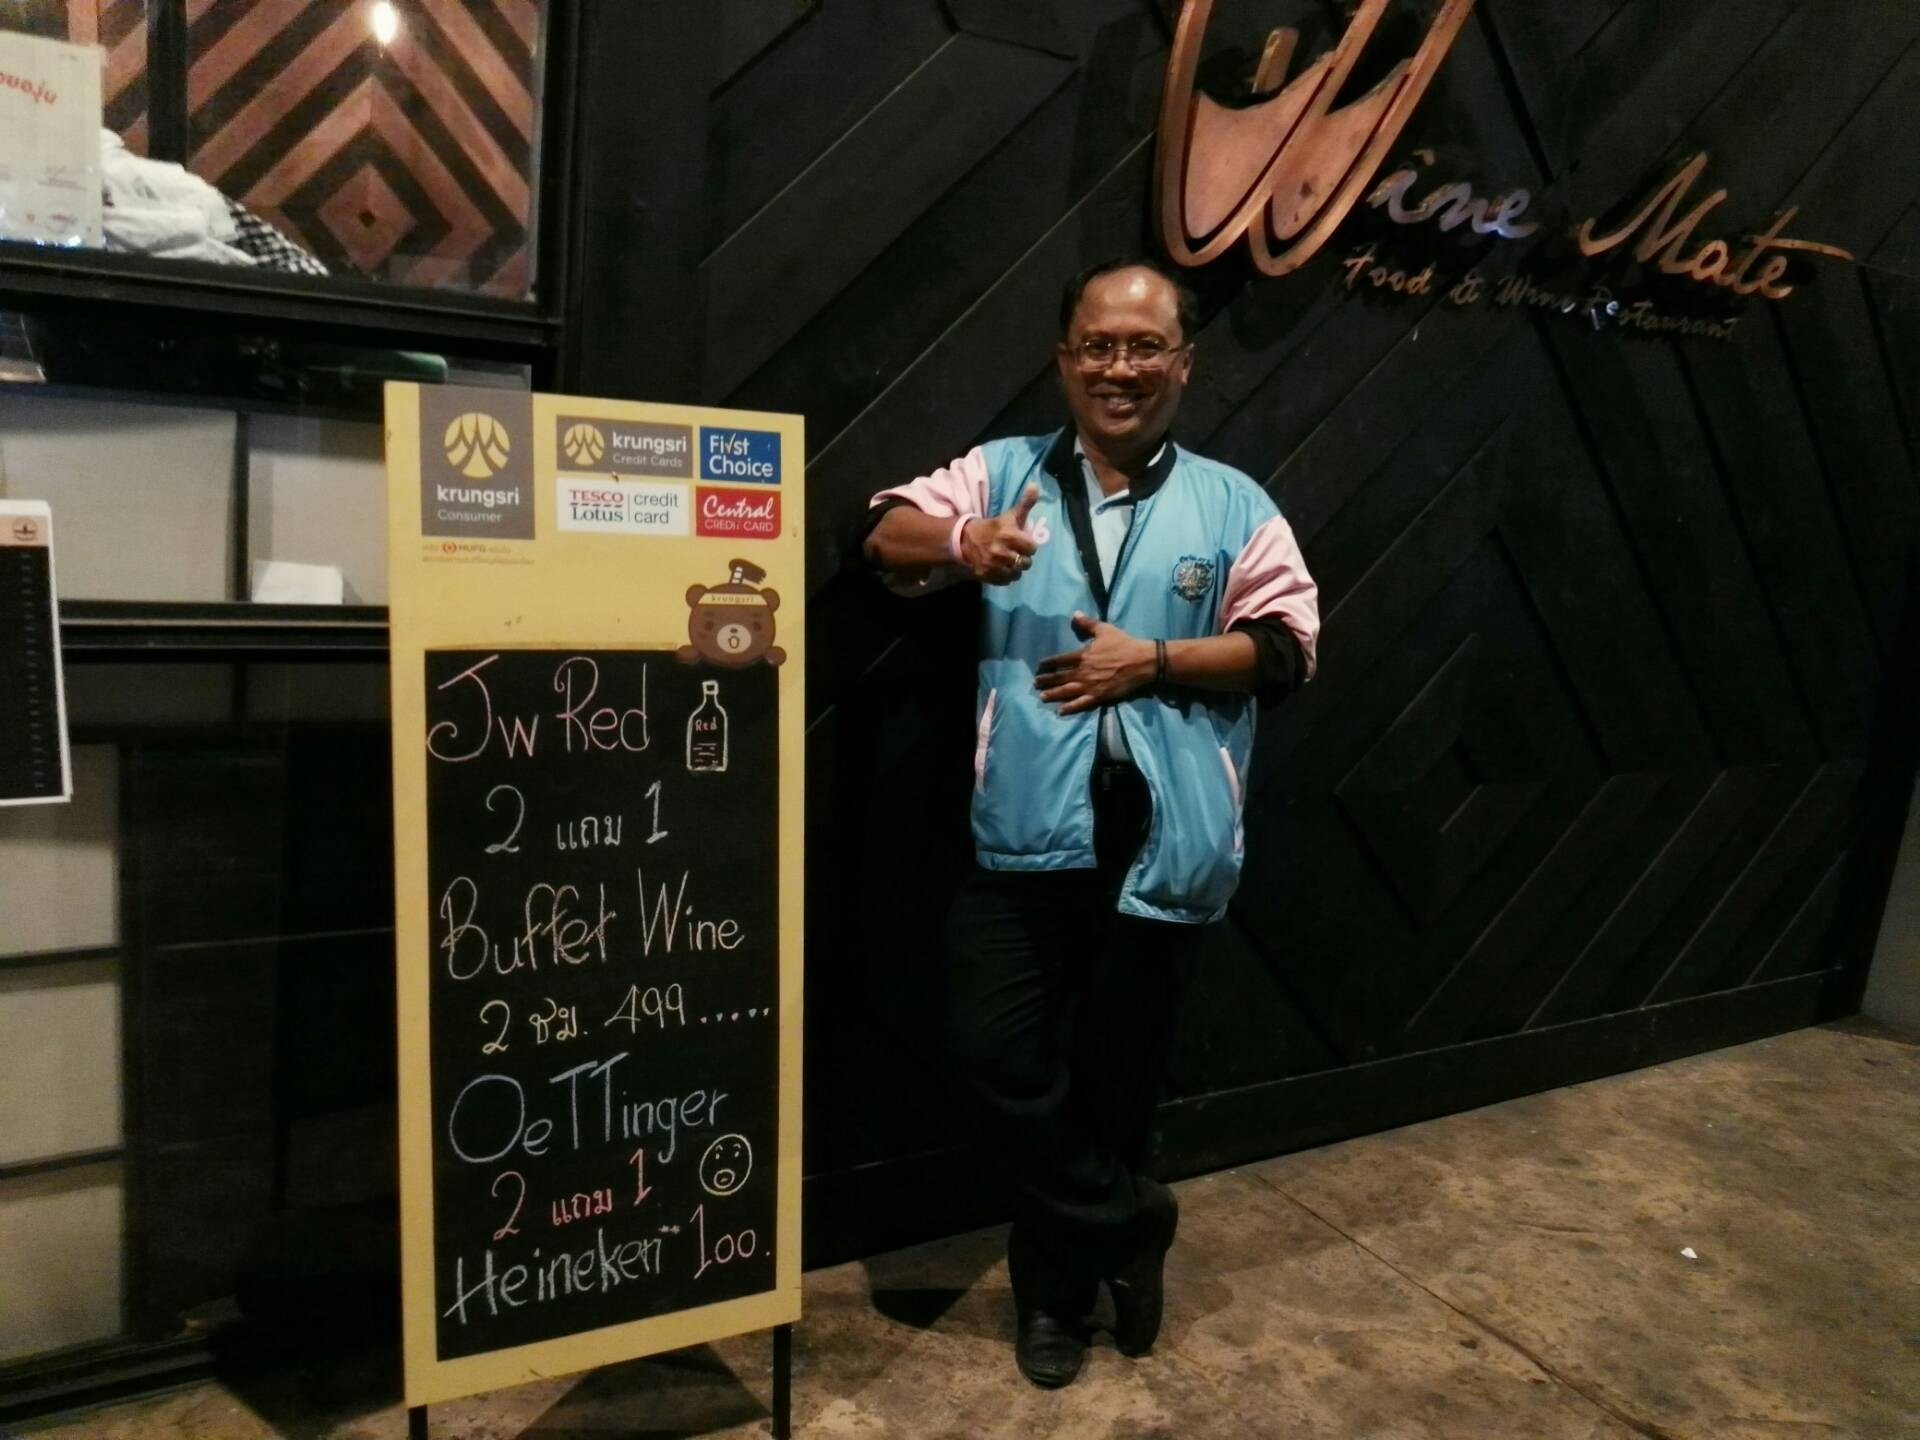 Wine Mate
Food & Wine Restaurant
krungsri
Consumer
krungsri
Credit Cards
First
Choice
TESCO
Lotus
credit
card
Central
CREDIT CARD
MUFG
krungsri
Jw Red
Red
2 แถม 1
Buffet Wine
2 ชม. 499.....
OeTTinger
2 แถม 1
Heineken 100.